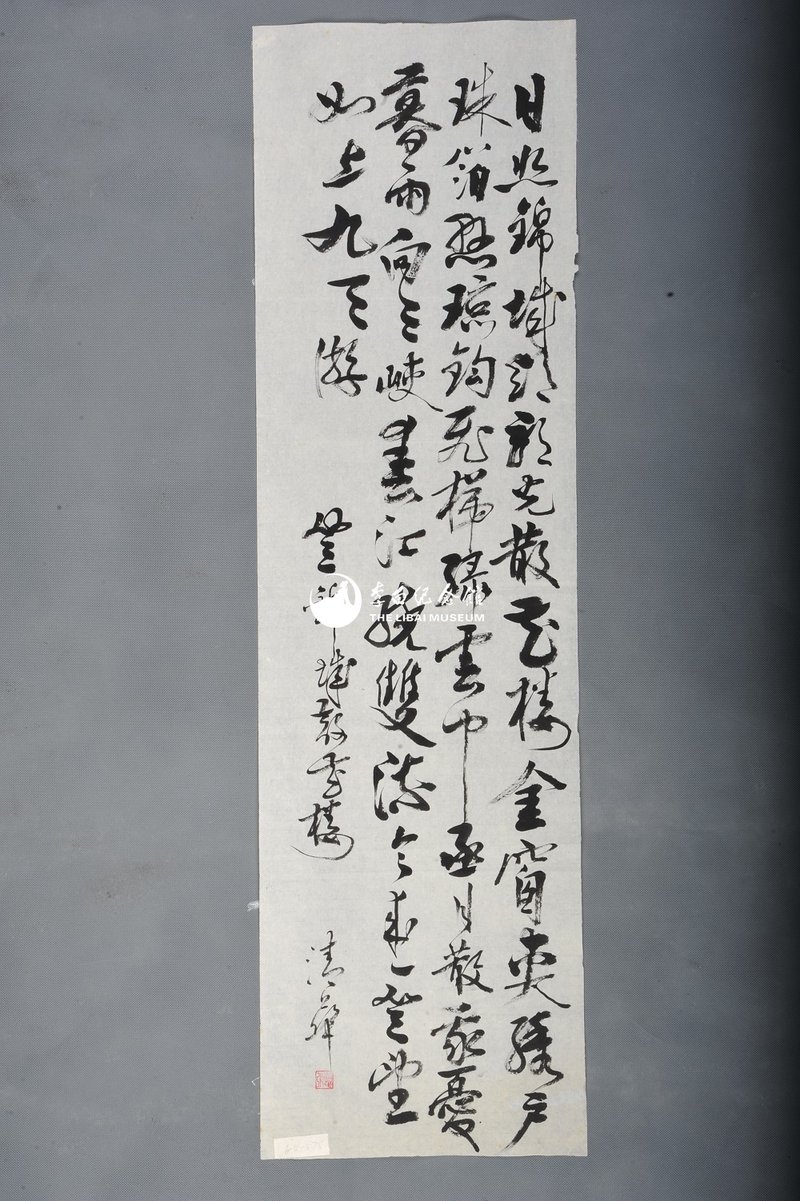 日照錦城頭朝光散花樓金窗夾繡戶
珠箔懸琼鈎飛梯綠雲中極目散我憂
暮雨向三峽春江繞雙流今來一登望
如上九天游
登錦城散花樓
清
李白纪念馆
THE LIBAI MUSEUM